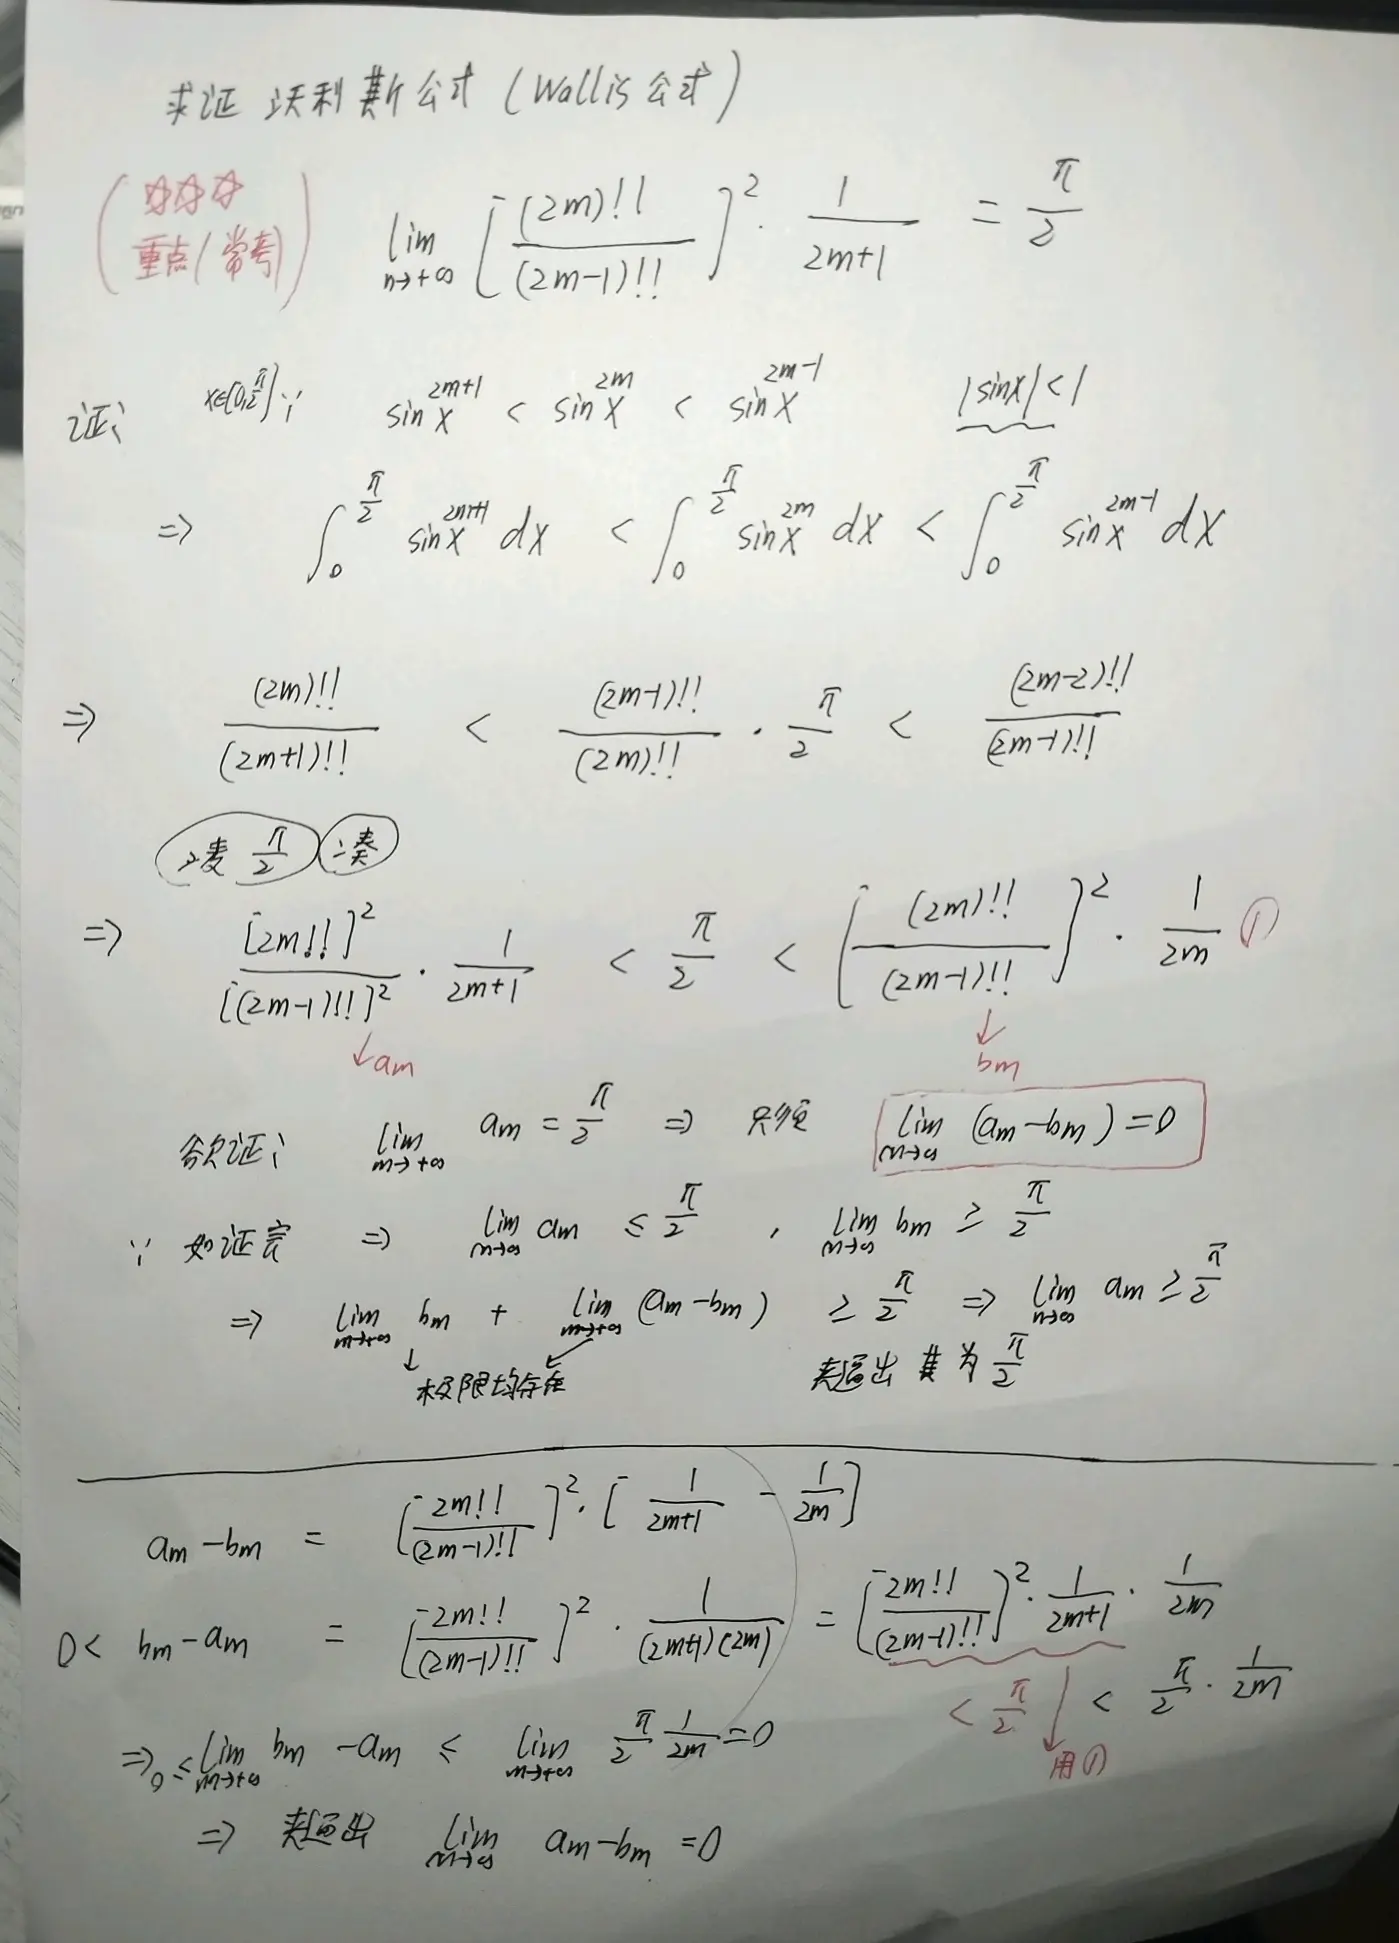 求证 沃利斯公式 (Wallis公式)
(☆☆☆ 重点(常考))
lim n→+∞ [(2m)!!/(2m-1)!!]² · 1/(2m+1) = π/2
证: x∈[0,π/2] ∵ sin^{2m+1}x < sin^{2m}x < sin^{2m-1}x |sinx|<1
⇒ ∫₀^{π/2} sin^{2m+1}x dx < ∫₀^{π/2} sin^{2m}x dx < ∫₀^{π/2} sin^{2m-1}x dx
⇒ (2m)!!/(2m+1)!! < (2m-1)!!/(2m)!! · π/2 < (2m-2)!!/(2m-1)!!
凑 π/2 凑
⇒ [2m!!]²/[(2m-1)!!]² · 1/(2m+1) < π/2 < [(2m)!!/(2m-1)!!]² · 1/2m ①
↓am ↓bm
欲证: lim m→+∞ am = π/2 ⇒ 只须 lim m→∞ (am-bm)=0
∵ 如证完 ⇒ lim m→∞ am ≤ π/2 , lim m→∞ bm ≥ π/2
⇒ lim m→+∞ bm + lim m→+∞ (am-bm) ≥ π/2 ⇒ lim m→∞ am ≥ π/2
↓ 极限均存在 夹逼出其为 π/2
am-bm = [2m!!/(2m-1)!!]² · [1/(2m+1) - 1/2m]
0< bm-am = [2m!!/(2m-1)!!]² · 1/((2m+1)(2m)) = [2m!!/(2m-1)!!]² · 1/(2m+1) · 1/2m
< π/2 ↓ 用① < π/2 · 1/2m
⇒ 0 ≤ lim m→+∞ bm-am ≤ lim m→+∞ π/2 1/2m =0
⇒ 夹逼出 lim m→∞ am-bm =0